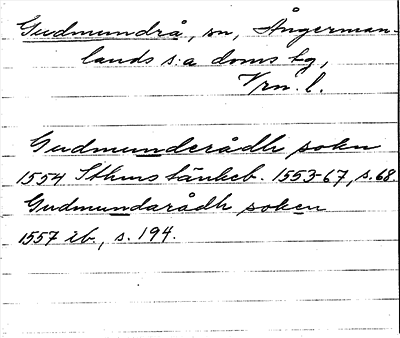 Gudmundrå, sn, Ångerman-
lands s:a doms tg,
Vrn. l.
Gudmunderådh sokn
1554 Sthms tänkeb. 1553-67, s. 68
Gudmundarådh soken
1557 ib., s. 194.